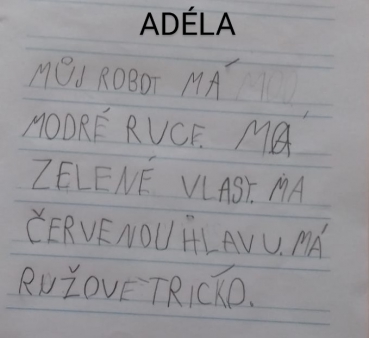 ADÉLA
MŮJ ROBOT MÁ MOD
MODRÉ RUCE. MÁ
ZELENÉ VLASY. MA
ČERVENOU HLAVU. MÁ
RŮŽOVE TRIČKO.